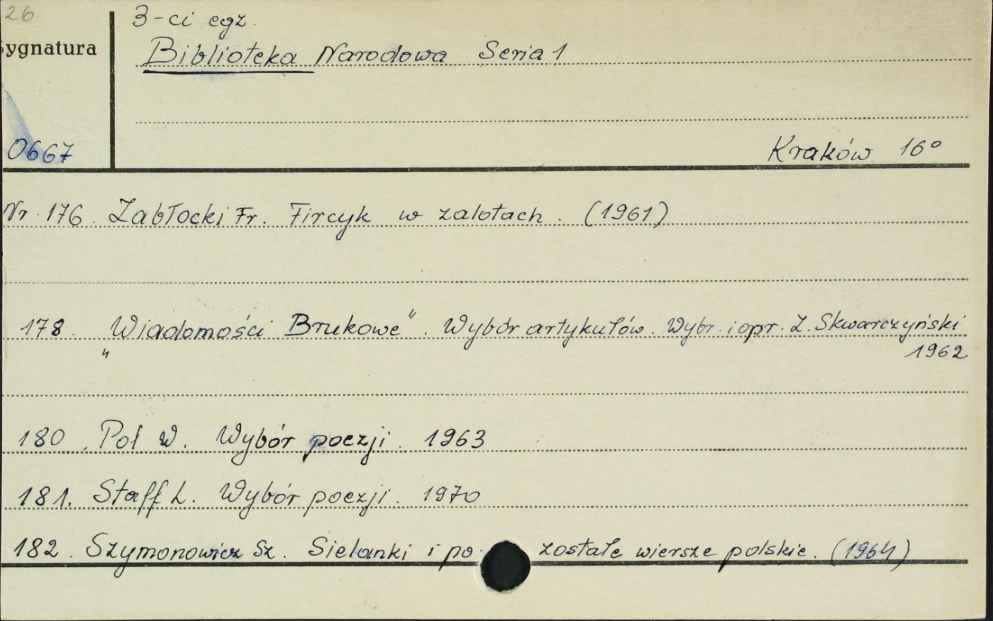 26
3-ci egz.
ygnatura
Biblioteka Narodowa Seria 1
0667
Kraków 16°
Nr. 176. Zabłocki Fr. Fircyk w zalotach. (1961)
178. „Wiadomości Brukowe". Wybór artykułów. Wybr. i opr. Z. Skwarczyński
1962
180. Pol W. Wybór poezji. 1963
181. Staff L. Wybór poezji. 1970
182. Szymonowicz Sz. Sielanki i pozostałe wiersze polskie. (1964)